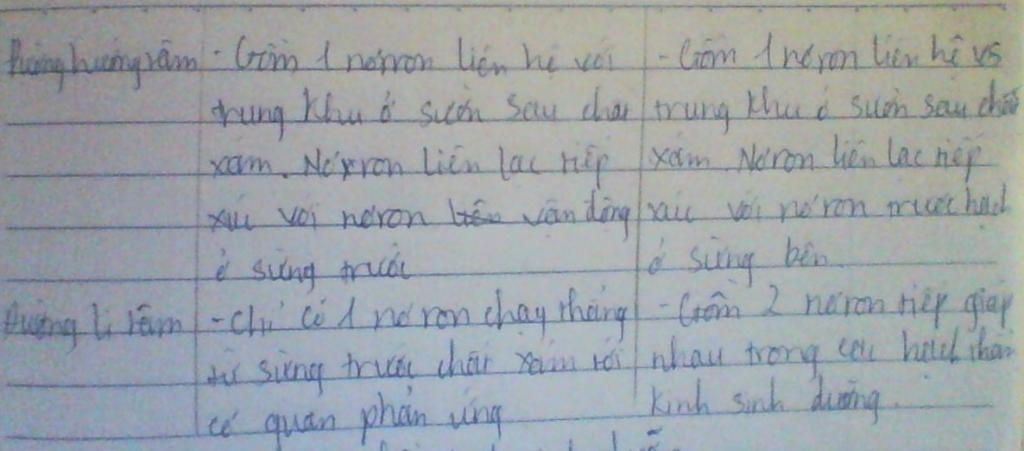 Đường hướng tâm - Gồm 1 nơron liên hệ với - Gồm 1 nơron liên hệ vs
trung khu ở sườn sau chất trung khu ở sườn sau chất
xám. Nơron liên lạc tiếp xám. Nơron liên lạc tiếp
xúc với nơron vận động xúc với nơron trước hạch
ở sừng trước ở sừng bên
Đường li tâm - Chỉ có 1 nơron chạy thẳng - Gồm 2 nơron tiếp giáp
từ sừng trước chất xám tới nhau trong các hạch thần
cơ quan phản ứng kinh sinh dưỡng.